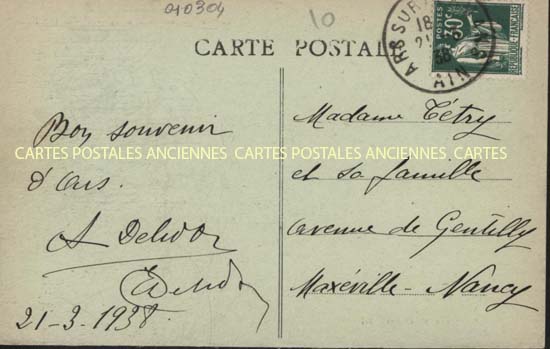 010304
10
CARTE POSTALE
ARS SUR
AIN
18
POSTES
30c
REPUBLIQUE FRANÇAISE
Bon souvenir
d'Ars.
21-3-1938
Madame Tétry
et sa famille
avenue de Gentilly
Maxéville-Nancy
CARTES POSTALES ANCIENNES CARTES POSTALES ANCIENNES CARTES